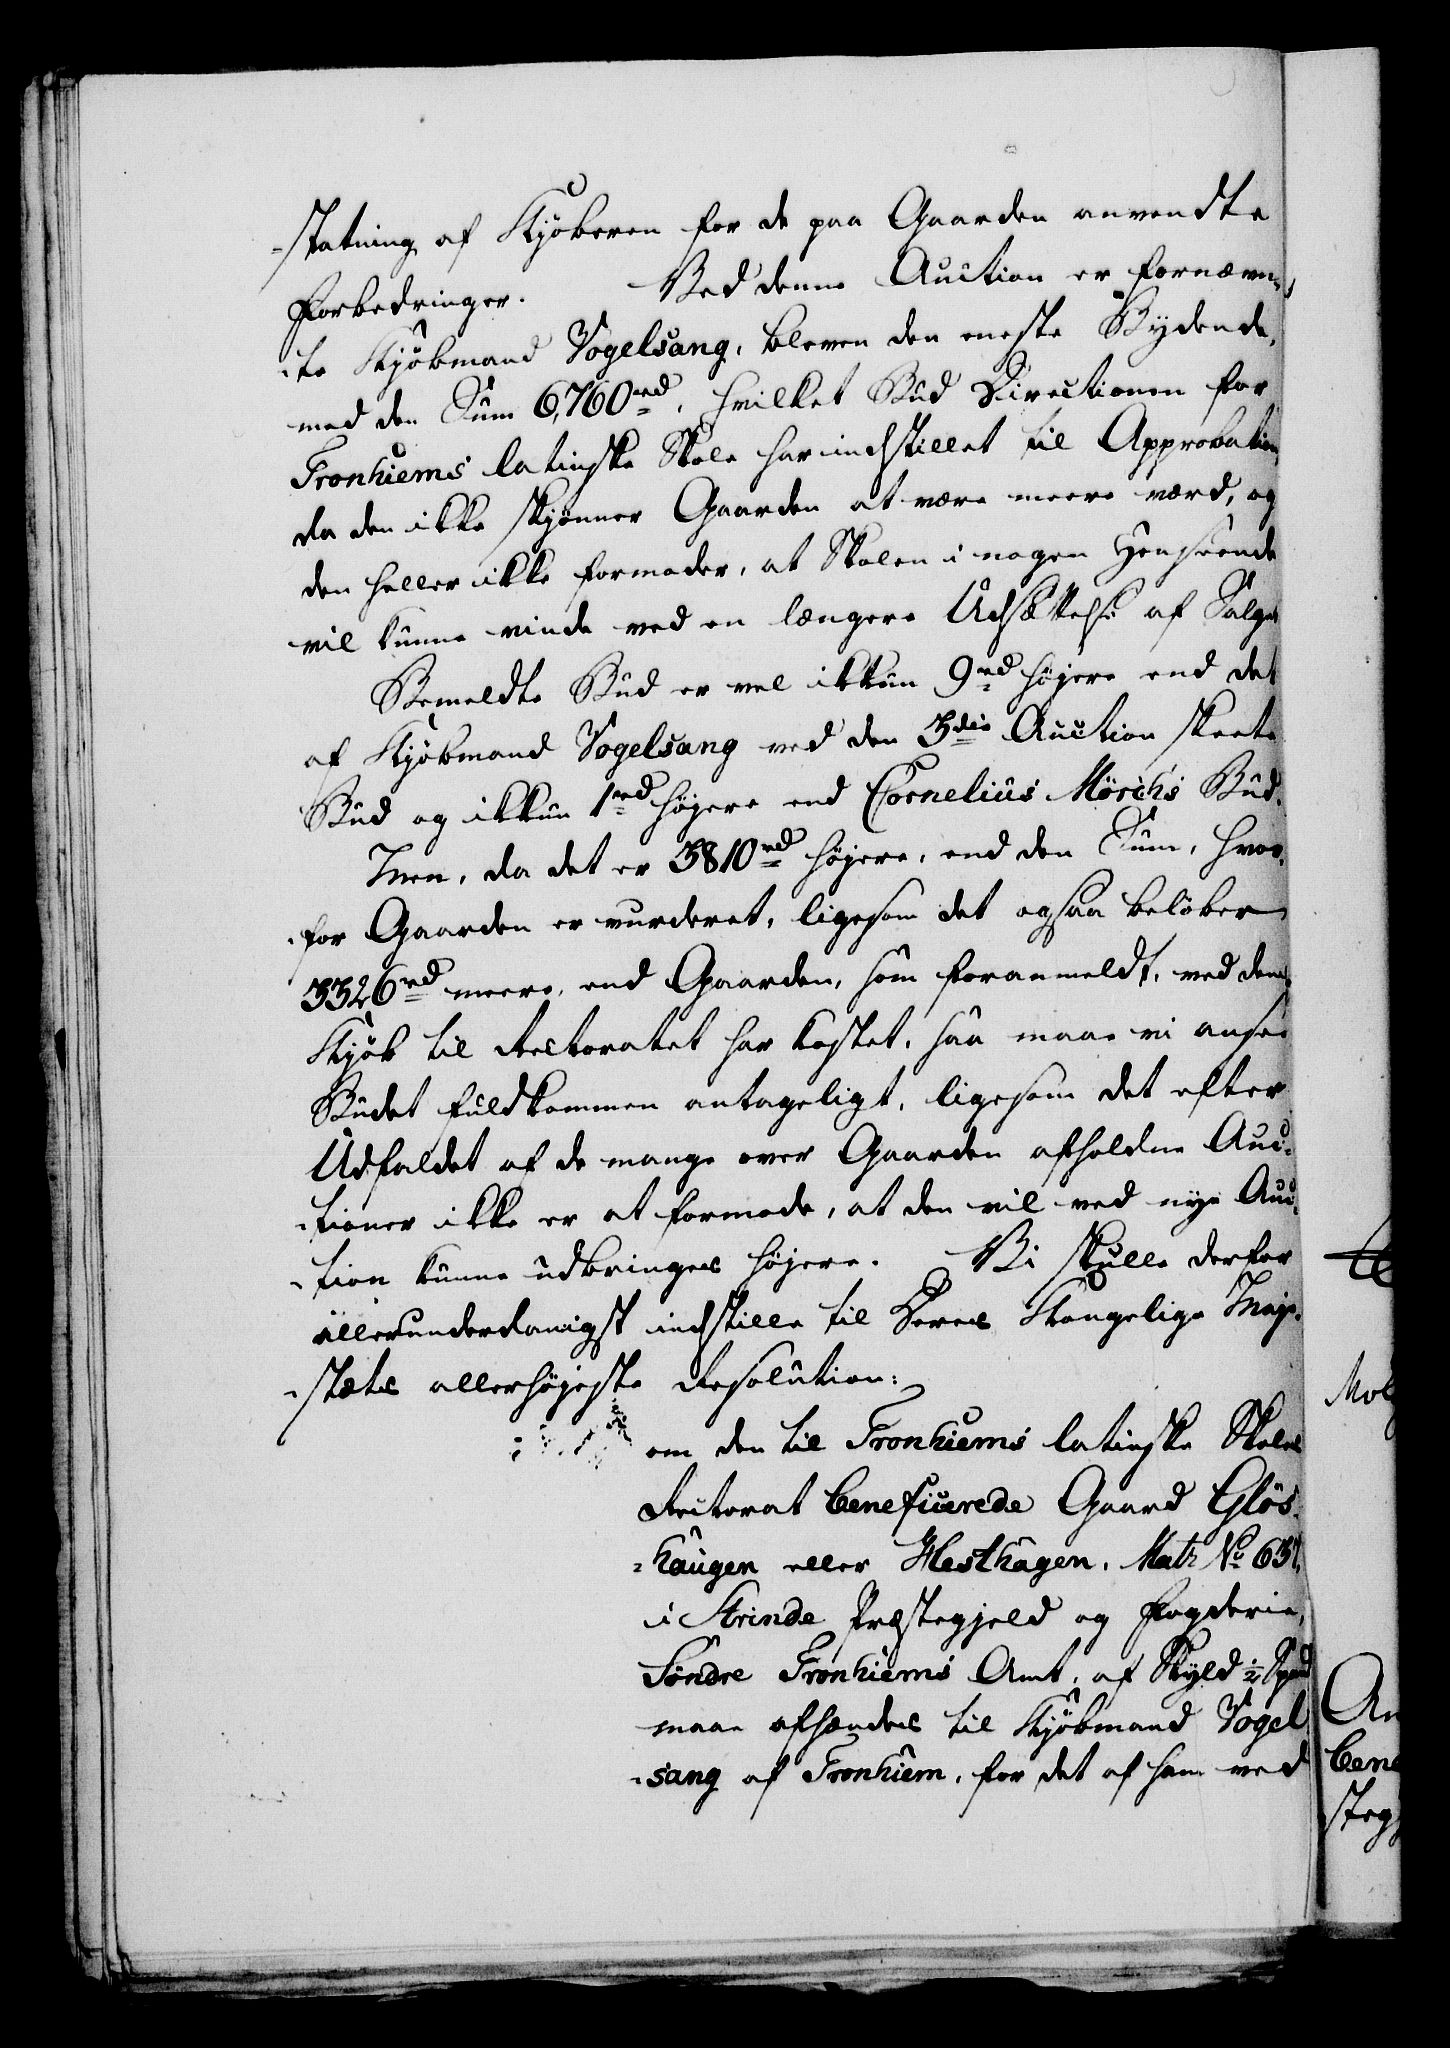 -statning af Kjøberen for de paa Gaarden anvendte
Forbedringer. Ved denne Auction er fornævn-
-te Kjøbmand Vogelsang, bleven den eneste Bydende,
med den Sum 6,760 rd, hvilket Bud Directionen for
Tronhiems latinske Skole har indstillet til Approbation,
da den ikke skjønner Gaarden at være meere værd, og
den heller ikke formoder, at Skolen i nogen Henseende
vil kunne vinde ved en længere Udsættelse af Salget
Bemeldte Bud er vel ikkun 9 rd højere end det
af Kjøbmand Vogelsang ved den 3die Auction skeete
Bud og ikkun 1 rd højere end Cornelius Mörchs Bud.
Men, da det er 3810 rd højere, end den Sum, hvor-
-for Gaarden er vurderet, ligesom det ogsaa beløber
3326 rd meere, end Gaarden, som foranmeldt, ved dens
Kjøb til Rectoratet har kostet, saa maae vi ansee
Budet fuldkommen antageligt, ligesom det efter
Udfaldet af de mange over Gaarden afholdne Auc-
-tioner ikke er at formode, at den vil ved nye Auc-
-tion kunne udbringes højere. Vi skulle derfor
allerunderdanigst indstille til Deres Kongelige Maje-
-stæts allerhøjeste Resolution:
om den til Tronhiems latinske Skoles
Rectorat beneficerede Gaard Glös-
-haugen eller Hesthagen, Matr No 637,
i Strinde Præstegjeld og Fogderie,
Söndre Tronhiems Amt, af Skyld 1/2 Spand
maae afhændes til Kjøbmand Vogel-
-sang af Tronhiem, for det af ham ved